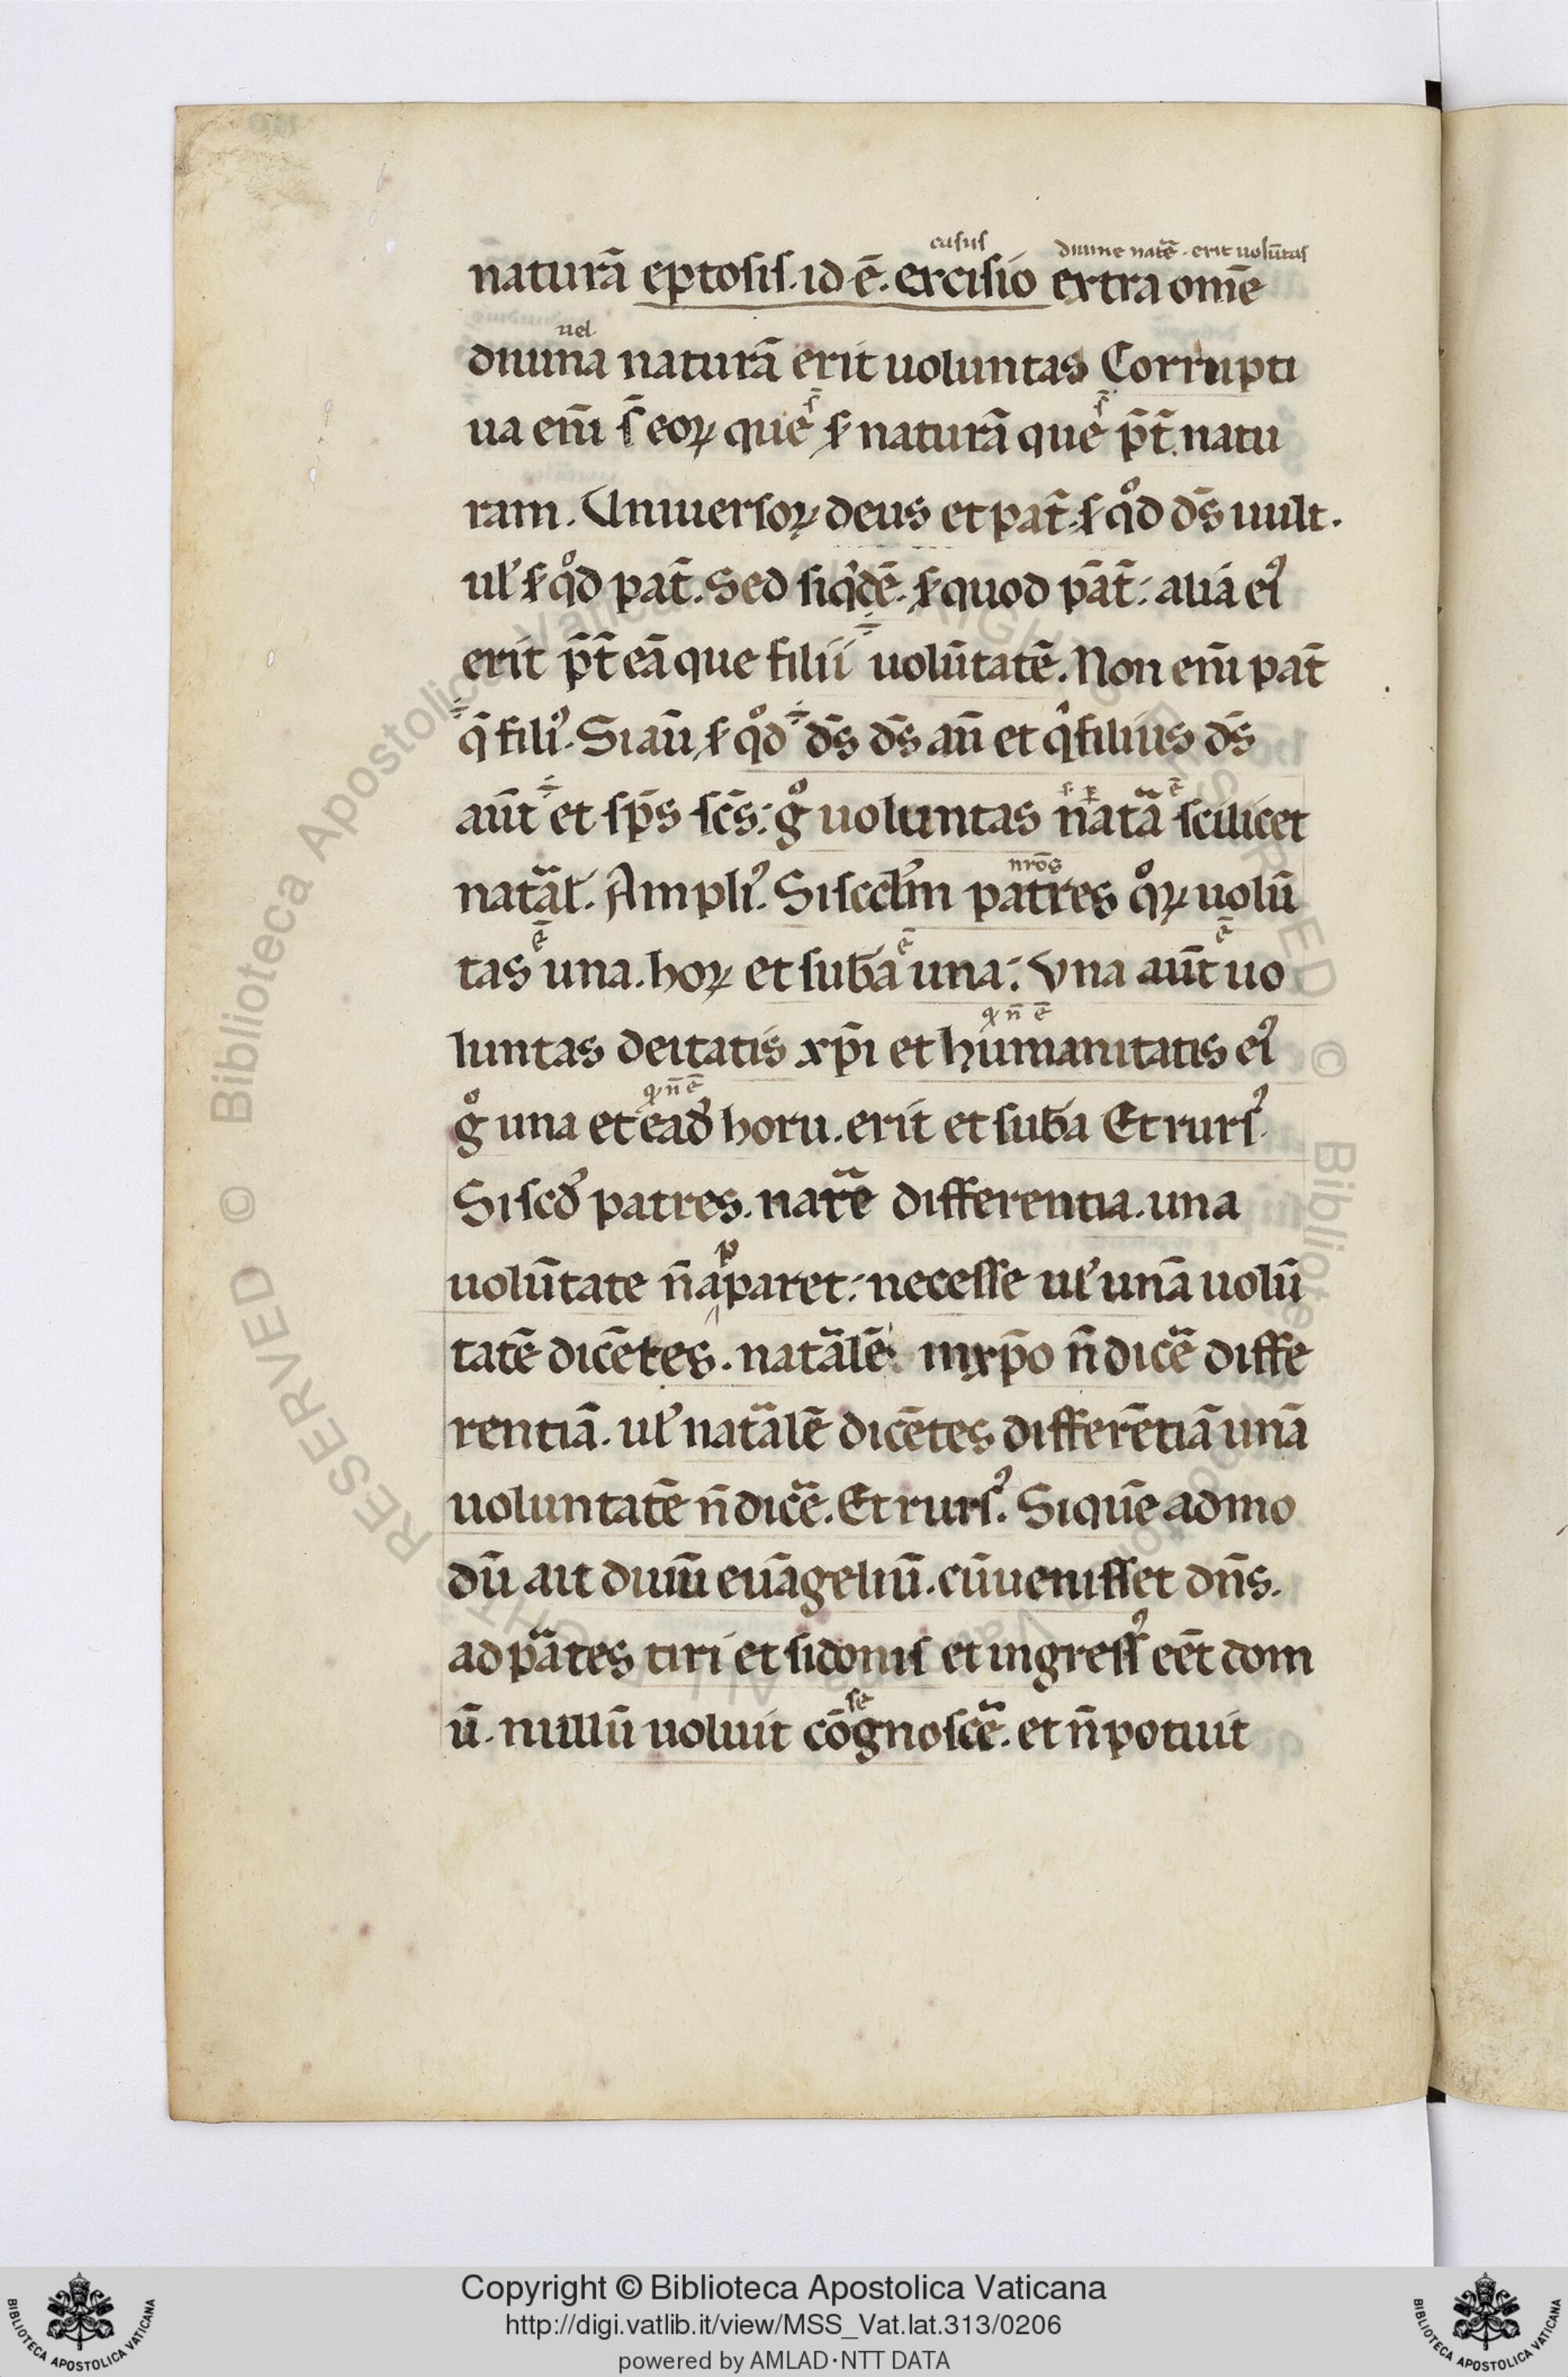 casus diuine nat̃e . erit uolũtas
naturã eptosis . id ẽ . excisio extra om̃e
uel
diuina naturã erit uoluntas Corrupti
ua em̃ s̃ eoꝝ que s̃ naturã que p̃t natu
ram . Uniuersoꝝ deus et pat̃ . qͦd d̃s uult .
ul̓ qͦd pat̃ . Sed siqͥdẽ . quod p̃at̃ : aliã eiꝰ
erit p̃t eã que filii uolũtatẽ . Non em̃ pat̃
q̃ filiꝰ . Si aũ qͦd d̃s d̃s aũ et qͥ filius d̃s
aũt et sp̃s sc̃s : gͦ uoluntas nat̃a scilicet
ẽ
nat̃al̓ . Ampliꝰ . Si scd̓m patres qͦꝝ uolũ
nr̃os
tas una . hoꝝ et sub̃a una : Una aũt uo
ẽ ẽ ẽ
luntas deitatis xp̃i et humanitatis eiꝰ
ꝙ ñ ẽ
gͦ una et ead̓ horu . erit et sub̃a Et rursꝰ
ꝙ ñ ẽ
Si scd̓ patres . nat̃e differentia . una
uolũtate ñ aparet : necesse ul̓ unã uolũ
p
tatẽ dicẽtes . nat̃alẽ in xp̃o ñ dic̃e diffe
rentiã . ul̓ nat̃alẽ dicẽtes differẽtiã unã
uoluntatẽ ñ dic̃e . Et rursꝰ . Si quẽ admo
dũ ait diuiũ euãgeliũ . cũ uenisset dñs .
ad p̃ates tiri et sidonis et ingressꝰ eẽt dom
ũ . nullũ uoluit cõgnosc̃e . et ñ potuit
se
Copyright © Biblioteca Apostolica Vaticana
http://digi.vatlib.it/view/MSS_Vat.lat.313/0206
powered by AMLAD·NTT DATA